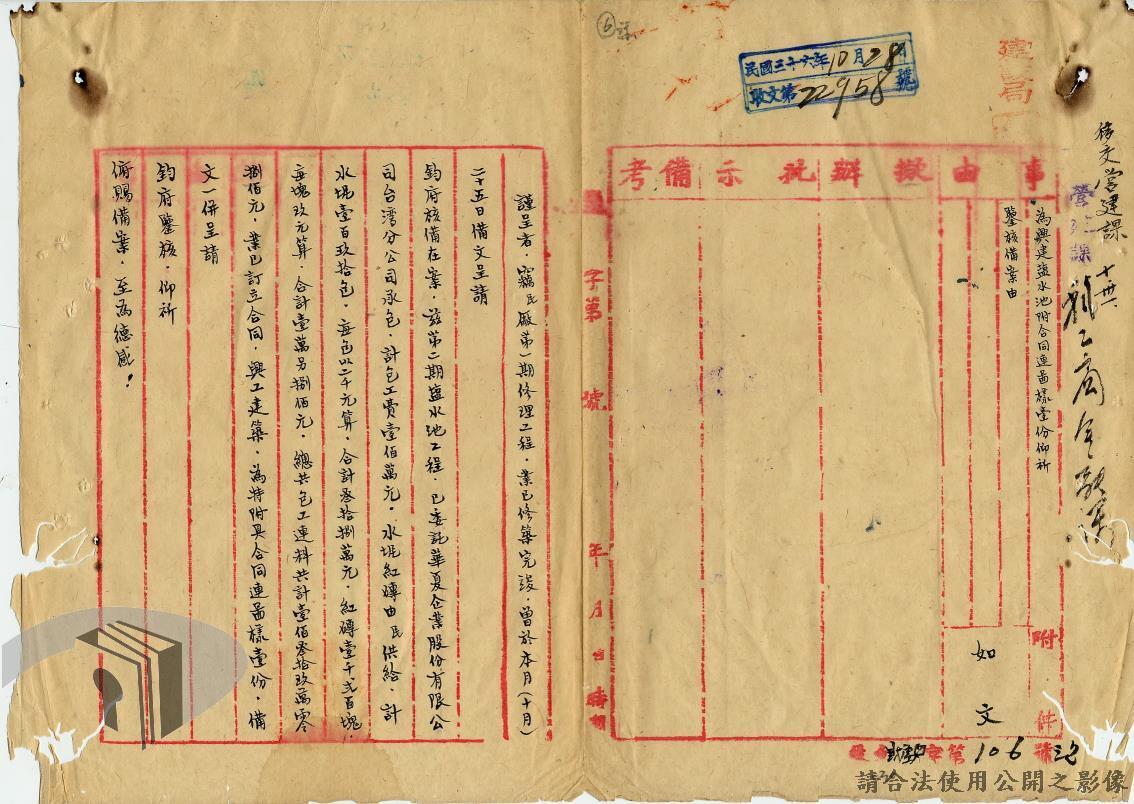 建局
民國三十六年10月28日
收文第22958號
6
事由擬辦批示備考
為興建鹽水池附合同連圖樣壹份仰祈
鑒核備案由
附件
如文
字第106號
字第 號
年 月 日 時
謹呈者.竊民廠第一期修理工程.業已修築完竣.曾於本月(十月)
二十五日備文呈請
鈞府核備在案.茲第二期鹽水池工程.已委託華夏企業股份有限公
司台湾分公司承包.計包工費壹佰萬元.水坭紅磚由民供給.計
水坭壹百玖拾包.每包以二千元算.合計叁拾捌萬元.紅磚壹千弍百塊.
每塊玖元算.合計壹萬另捌佰元.總共包工連料共計壹佰叁拾玖萬零
捌佰元.業已訂立合同.興工建築.為特附具合同連圖樣壹份.備
文一併呈請
鈞府鑒核.仰祈
俯賜備案.至為德感!
請合法使用公開之影像